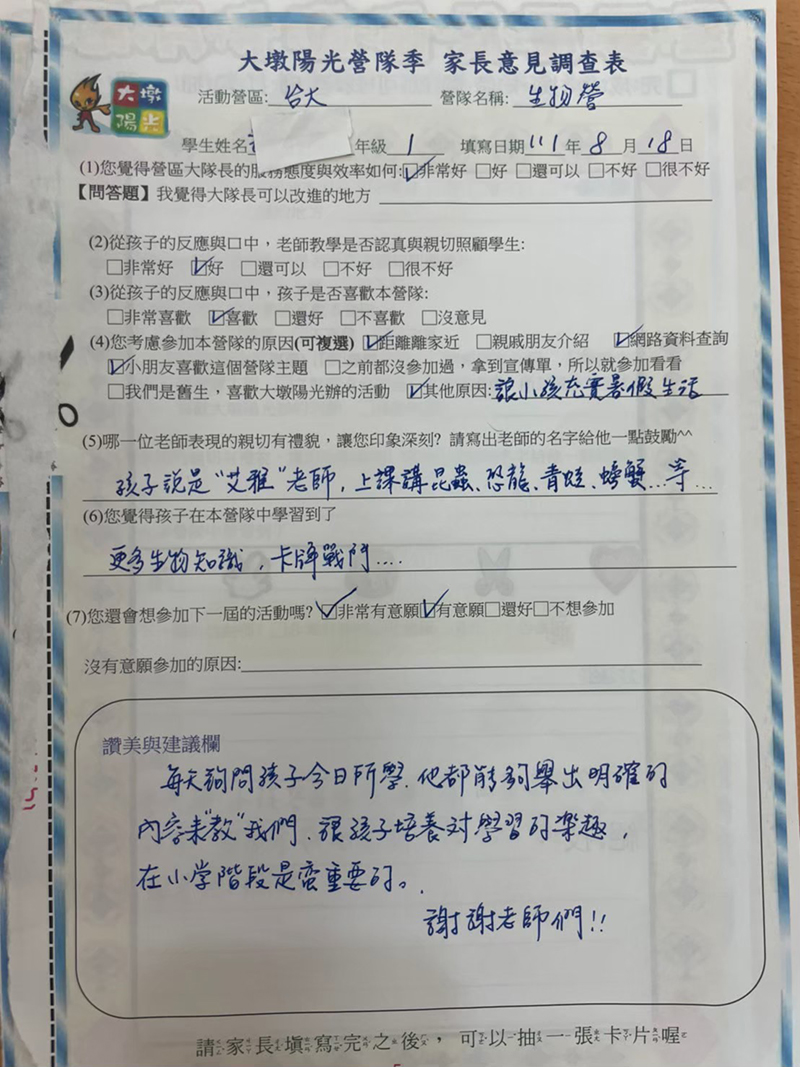 大墩陽光營隊季 家長意見調查表
大墩
陽光
活動營區: 台大 營隊名稱: 生物營
學生姓名 年級 1 填寫日期 111 年 8 月 18 日
(1)您覺得營區大隊長的服務態度與效率如何:☑非常好 □好 □還可以 □不好 □很不好
【問答題】我覺得大隊長可以改進的地方
(2)從孩子的反應與口中，老師教學是否認真與親切照顧學生:
□非常好 ☑好 □還可以 □不好 □很不好
(3)從孩子的反應與口中，孩子是否喜歡本營隊:
□非常喜歡 ☑喜歡 □還好 □不喜歡 □沒意見
(4)您考慮參加本營隊的原因(可複選) ☑距離離家近 □親戚朋友介紹 ☑網路資料查詢
☑小朋友喜歡這個營隊主題 □之前都沒參加過，拿到宣傳單，所以就參加看看
□我們是舊生，喜歡大墩陽光辦的活動 ☑其他原因:讓小孩充實暑假生活
(5)哪一位老師表現的親切有禮貌，讓您印象深刻? 請寫出老師的名字給他一點鼓勵^^
孩子說是"艾雅"老師，上課講昆蟲、恐龍、青蛙、螃蟹…等…
(6)您覺得孩子在本營隊中學習到了
更多生物知識，卡牌戰鬥....
(7)您還會想參加下一屆的活動嗎? ☑非常有意願☑有意願□還好□不想參加
沒有意願參加的原因:
讚美與建議欄
每天詢問孩子今日所學，他都能夠舉出明確的
內容來"教"我們，讓孩子培養對學習的樂趣，
在小学階段是蠻重要的。
謝謝老師們!!
請家長填寫完之後，可以抽一張卡片喔